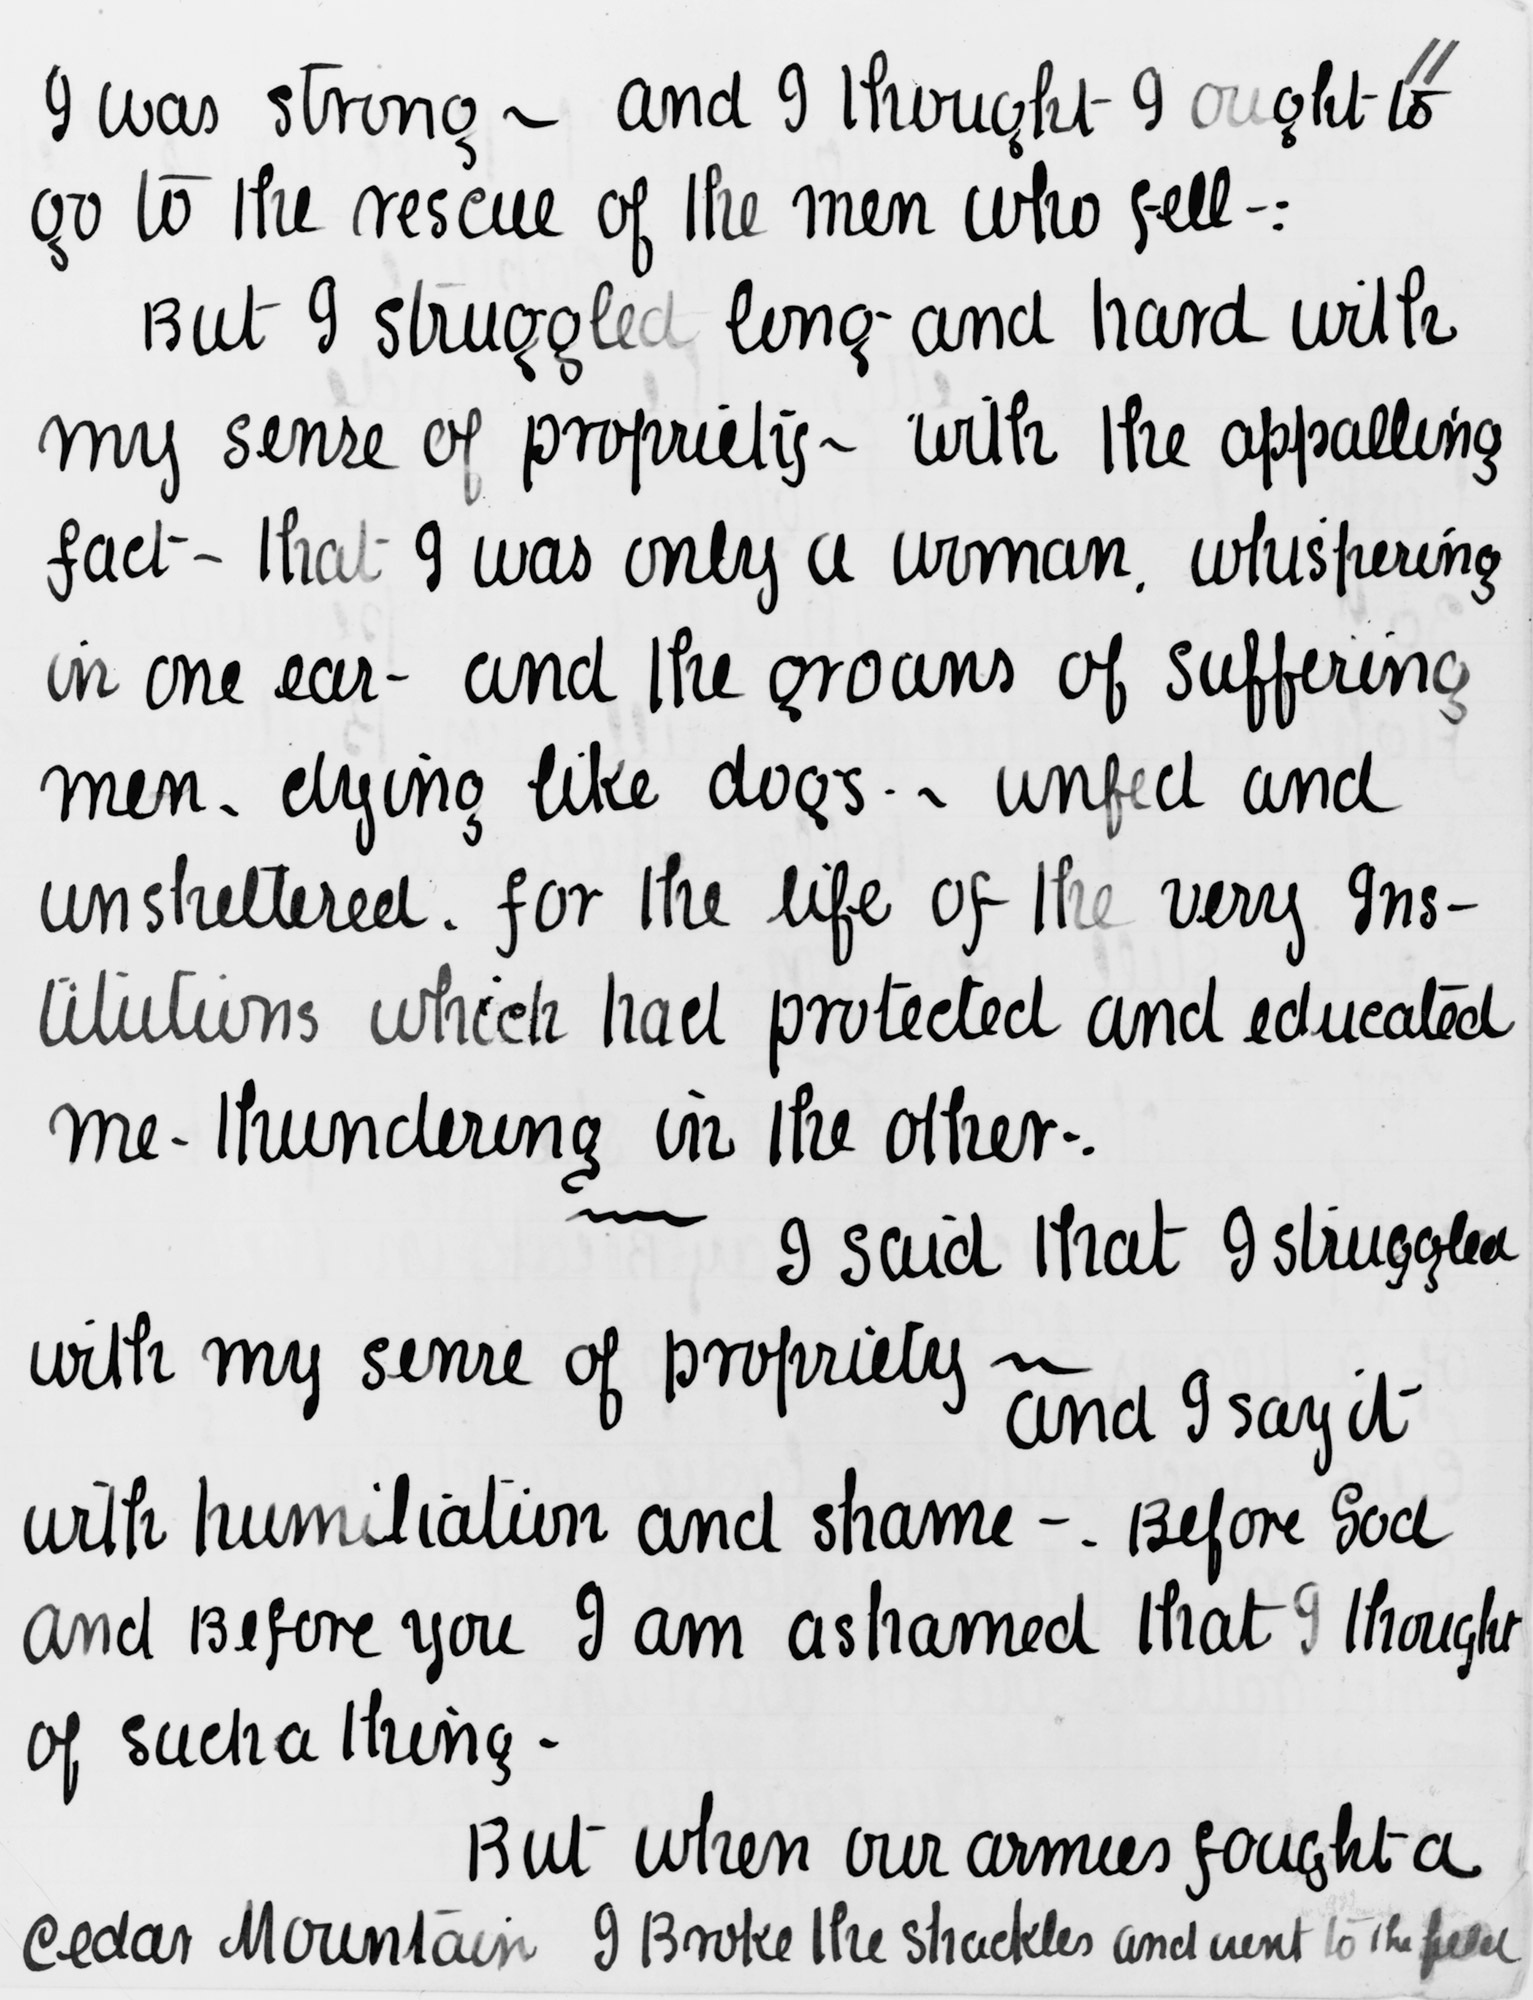 I was strong ~ and I thought I ought to
go to the rescue of the men who fell -:
But I struggled long and hard with
my sense of propriety ~ with the appalling
fact - that I was only a woman. whispering
in one ear - and the groans of suffering
men. dying like dogs - ~ unfed and
unsheltered. for the life of the very Ins-
titutions which had protected and educated
me - thundering in the other -.
I said that I struggled
with my sense of propriety ~
and I say it
with humiliation and shame -. Before God
and Before you I am ashamed that I thought
of such a thing -
But when our armies fought a
Cedar Mountain I Broke the shackles and went to the field